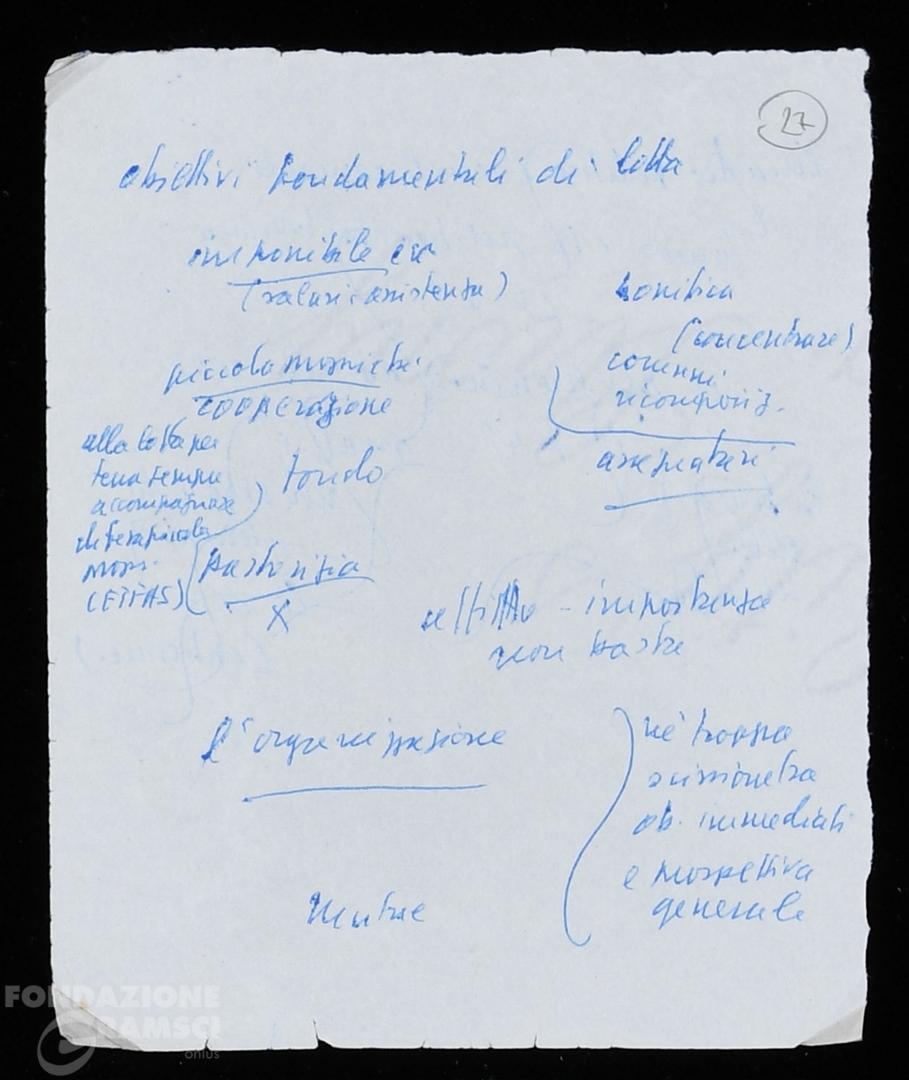 27
obiettivi fondamentali di lotta
imponibile ecc
(salari: assistenza)
bonifica
(concentrare)
comuni
ricomposiz.
piccola proprietà
cooperazione
alla lotta per
terra sempre
accompagnare
difesa piccola
propr.
(ETFAS)
fondo
pastorizia
X
affitto - importanza
non basta
l'organizzazione
né troppa
simmetria
ob. immediati
e prospettiva
generale
FONDAZIONE
GRAMSCI
onlus